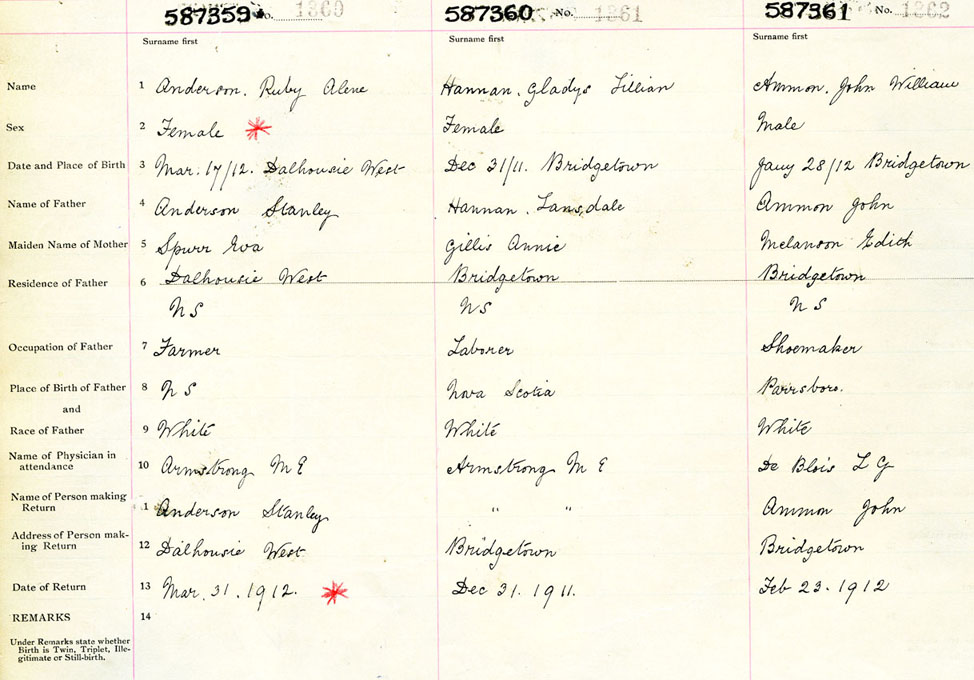 587359 No. 1360 587360 No. 1361 587361 No. 1362
Surname first Surname first Surname first
Name 1 Anderson. Ruby Alene Hannan. Gladys Lillian Ammon. John William
Sex 2 Female Female Male
Date and Place of Birth 3 Mar. 17/12. Dalhousie West Dec 31/11. Bridgetown Jany 28/12 Bridgetown
Name of Father 4 Anderson Stanley Hannan. Lansdale Ammon John
Maiden Name of Mother 5 Spurr Eva Gillis Annie Melanson Edith
Residence of Father 6 Dalhousie West Bridgetown Bridgetown
NS NS NS
Occupation of Father 7 Farmer Laborer Shoemaker
Place of Birth of Father 8 NS Nova Scotia Parrsboro.
and
Race of Father 9 White White White
Name of Physician in
attendance 10 Armstrong M E Armstrong M E De Blois L G
Name of Person making
Return 1 Anderson Stanley " " Ammon John
Address of Person mak-
ing Return 12 Dalhousie West Bridgetown Bridgetown
Date of Return 13 Mar. 31. 1912. Dec 31. 1911. Feb 23. 1912
REMARKS 14
Under Remarks state whether
Birth is Twin, Triplet, Ille-
gitimate or Still-birth.